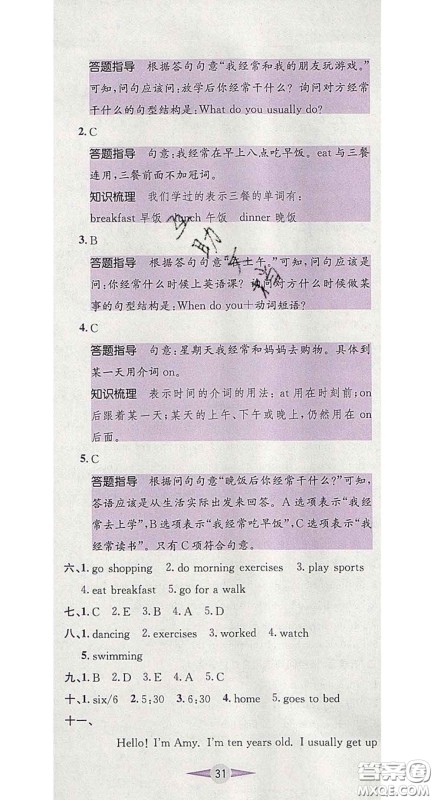 答题指导 根据答句句意“我经常和我的朋友玩游戏。”
可知,问句应该问:放学后你经常干什么? 询问对方经常
干什么的句型结构是:What do you usually do?
2. C
答题指导 句意:我经常在早上八点吃早饭。eat与三餐
连用,三餐前面不加冠词。
知识梳理 我们学过的表示三餐的单词有:
breakfast 早饭 lunch 午饭 dinner 晚饭
3. B
答题指导 根据答句句意“在上午。”可知,问句应该是
问:你经常什么时候上英语课? 询问对方什么时候做某
事的句型结构是:When do you+动词短语?
4. C
答题指导 句意:星期天我经常和妈妈去购物。具体到
某一天用介词 on。
知识梳理 表示时间的介词的用法:at 用在时刻前;on
后跟着某一天;某天的上午、下午或晚上,仍然用在 on
后面。
5. C
答题指导 根据问句句意“晚饭后你经常干什么?”可知,
答语应该是从生活实际出发来回答。A 选项表示“我经
常去上学”,B 选项表示“我经常吃早饭”,C 选项表示“我
经常读书”。只有 C 项符合句意。
六、1. go shopping 2. do morning exercises 3. play sports
4. eat breakfast 5. go for a walk
七、1. C 2. E 3. B 4. A 5. D
八、1. dancing 2. exercises 3. worked 4. watch
5. swimming
九、1. B 2. D 3. E 4. A 5. C
十、1. six/6 2. 5:30 3. 6:30 4. home 5. goes to bed
十一、
Hello! I'm Amy. I'm ten years old. I usually get up
31
答案圈
MXQE.COM